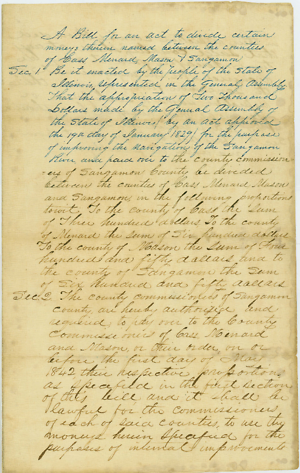 A Bill for an act to divide certain
moneys therein named between the counties
of Cass Menard Mason & Sangamon
Sec. 1 Be it enacted by the people of the State of
Illinois, represented in the General Assembly
That the appropriation of Two thousand
Dollars made by the General Assembly of
the State of Illinois by an act approved
the day of January 1829, for the purpose
of improving the navigation of the Sangamon
River and paid over to the county Commission-
ers of Sangamon County be divided
between the counties of Cass Menard Mason
and Sangamon in the following proportions
towit: To the county of Cass the Sum
of Three hundred dollars To the county
of Menard the Sum of hundred dollars
To the county of Mason the Sum of Four
hundred and fifty dollars and to
the county of Sangamon the Sum
of Six hundred and fifty dollars
Sec. 2 The county commissioners of Sangamon
county are hereby authorised and
required to pay over to the County
Commissioners of Cass Menard
and Mason or their order on or
before the first day of May
1842 their respective proportions
as specified in the first section
of this bill and it shall be
lawful for the commissioners
of each of said counties, to use the
moneys herein specified for the
purposes of internal improvements